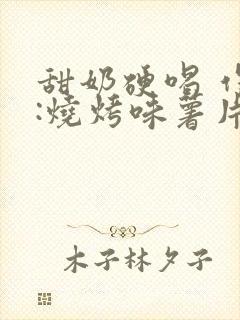 甜奶硬唱
:燒烤味薯片
木子林夕子